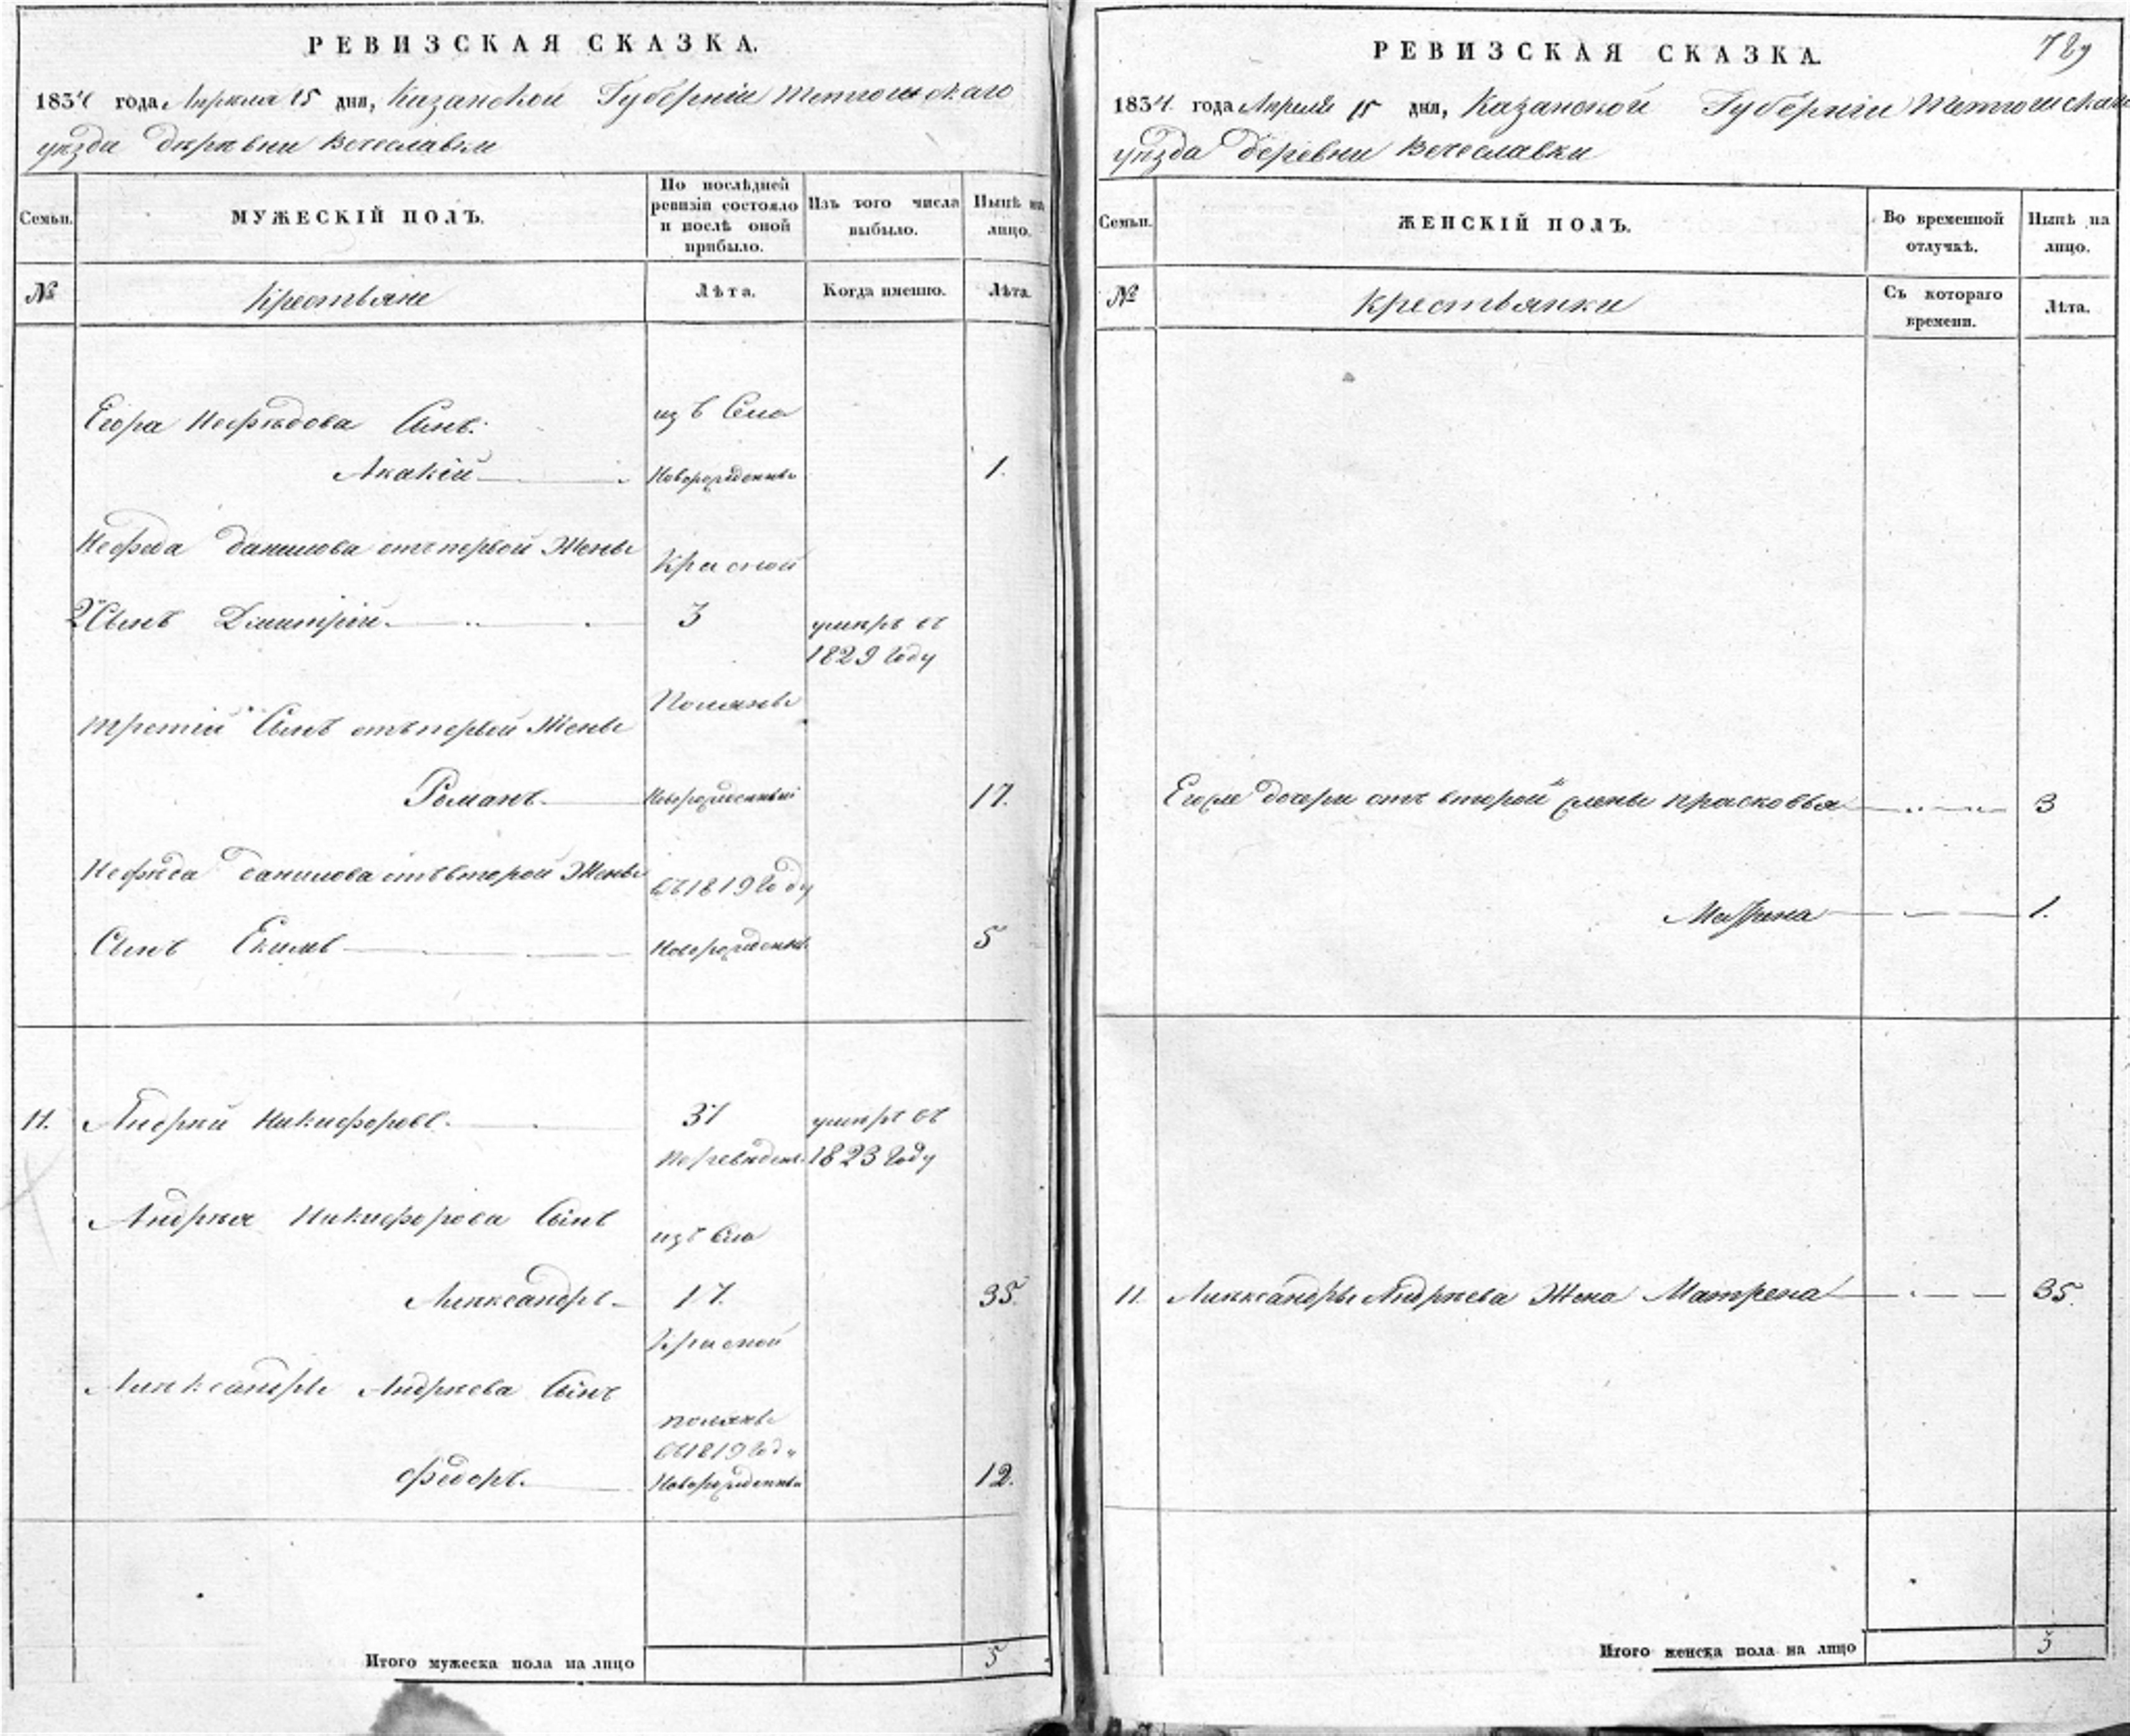 РЕВИЗСКАЯ СКАЗКА.
1834 года Апреля 15 дня, Казанской Губерніи Тетюшскаго
уѣзда деревни Вечеславки
Семьи.
МУЖЕСКІЙ ПОЛЪ.
По послѣдней
ревизіи состояло
и послѣ оной
прибыло.
Изъ того числа
выбыло.
Нынѣ на
лицо.
№
Крестьяне
Лѣта.
Когда именно.
Лѣта.
Егора Нефедова Сынъ:
изъ Села
Акакій
Новорожденный
1.
Нефеда Данилова отъ первой Жены
Красной
2й Сынъ Дмитрій
3
умеръ въ
1829 году
Поляны
третій Сынъ отъ первой Жены
Романъ
Новорожденный
17.
Нефеда Данилова отъ второй Жены
въ 1819 году
Сынъ Екимъ
Новорожденный
5
11.
Андрей Никифоровъ
37
умеръ въ
Переведенъ
1823 году
Андрея Никифорова Сынъ
изъ Села
Александръ
17.
35.
Красной
Александры Андреева Сынъ
поляны
въ 1819 году
Федоръ
Новорожденный
12.
Итого мужеска пола на лицо
5
789
РЕВИЗСКАЯ СКАЗКА.
1834 года Апреля 15 дня, Казанской Губерніи Тетюшскаго
уѣзда деревни Вечеславки
Семьи.
ЖЕНСКІЙ ПОЛЪ.
Во временной
отлучкѣ.
Нынѣ на
лицо.
№
Крестьянки
Съ котораго
времени.
Лѣта.
дочери отъ второй жены Прасковья
3
1.
11.
Александры Андреева Жена Матрена
35.
Итого женска пола на лицо
3